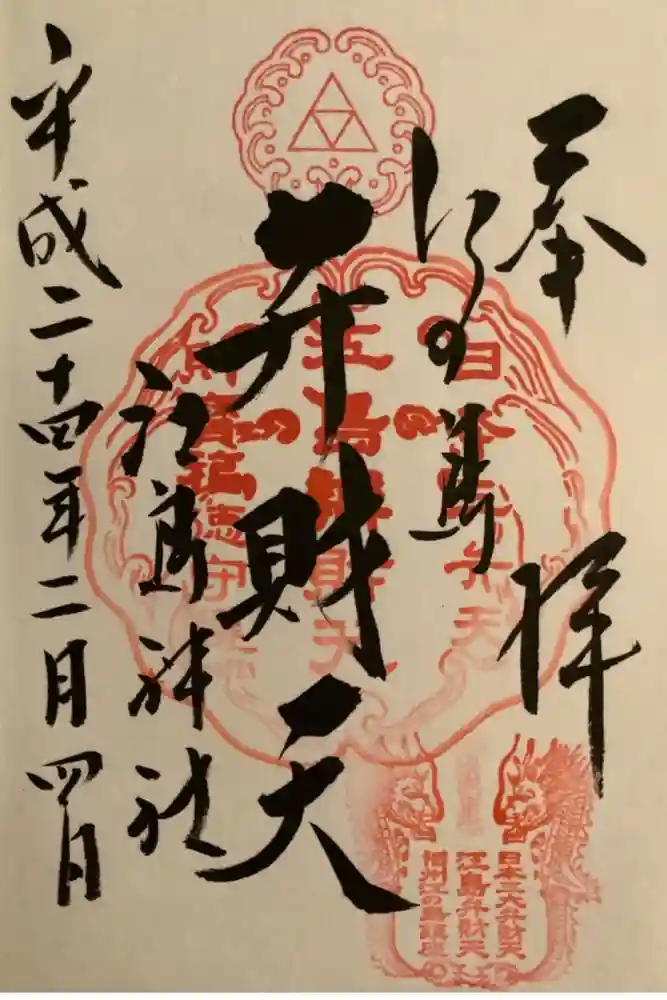 奉拝
江の島
弁財天
江島神社
平成二十四年二月四日
日本三大弁財天
江島弁財天
相州江の島鎮座